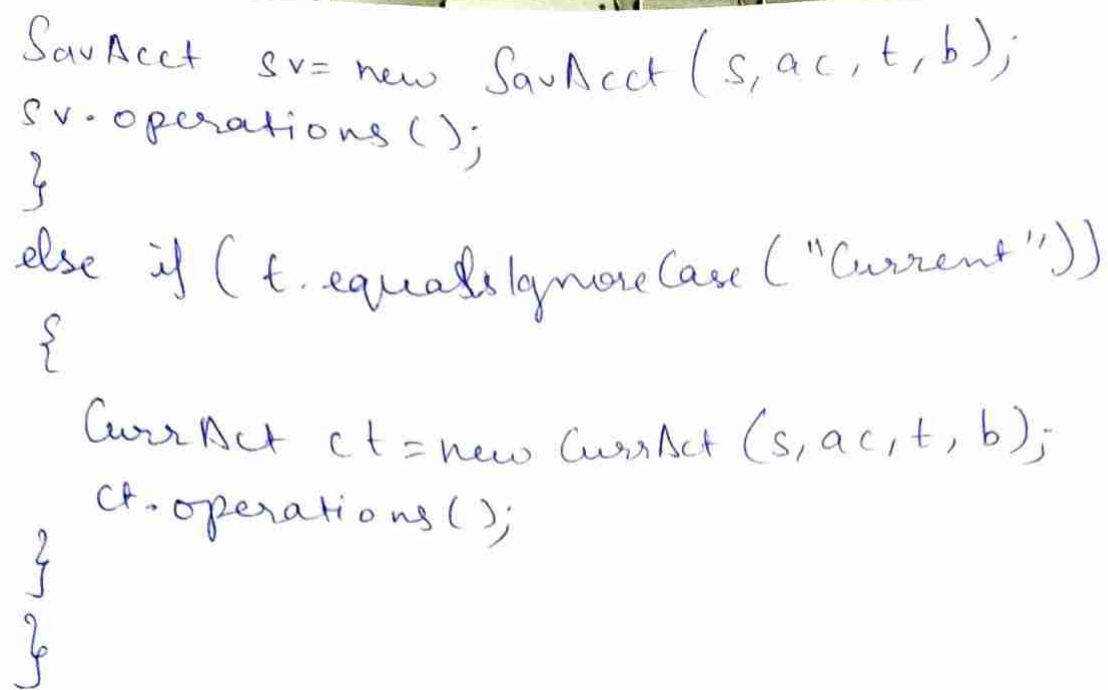 SavAcct sv= new SavAcct (s, ac, t, b);
sv.operations();
}
else if (t.equalsIgnoreCase ("Current"))
{
CurrAct ct = new CurrAct (s, ac, t, b);
ct.operations();
}
}